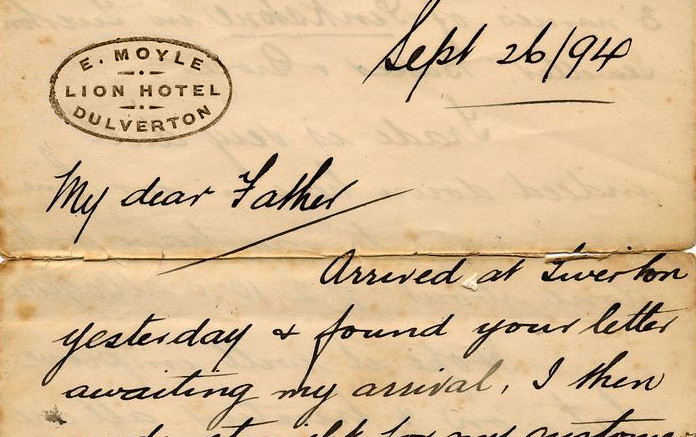 E. MOYLE
LION HOTEL
DULVERTON
Sept 26/94
My dear Father
Arrived at Tiverton
yesterday & found your letter
awaiting my arrival, I then